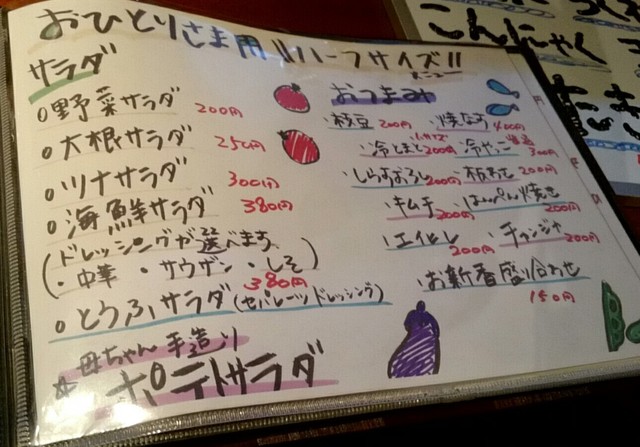 おひとりさま用 ハーフサイズ!!
メニュー
サラダ
野菜サラダ 200円
大根サラダ 250円
ツナサラダ 300円
海鮮サラダ 380円
(ドレッシングが選べます
・中華・サウザン・しそ)
380円
とうふサラダ(セパレーツドレッシング)
☆母ちゃん手造り
ポテトサラダ
おつまみ
・枝豆 200円 ・焼なす 400円
・冷とまと 200円 ・冷やっこ 300円
・しらすおろし 200円 ・板わさ 200円
・キムチ 200円 ・はんぺん焼き 200円
・エイヒレ 200円 ・チャンジャ 200円
・お新香盛り合わせ
150円
こんにゃく